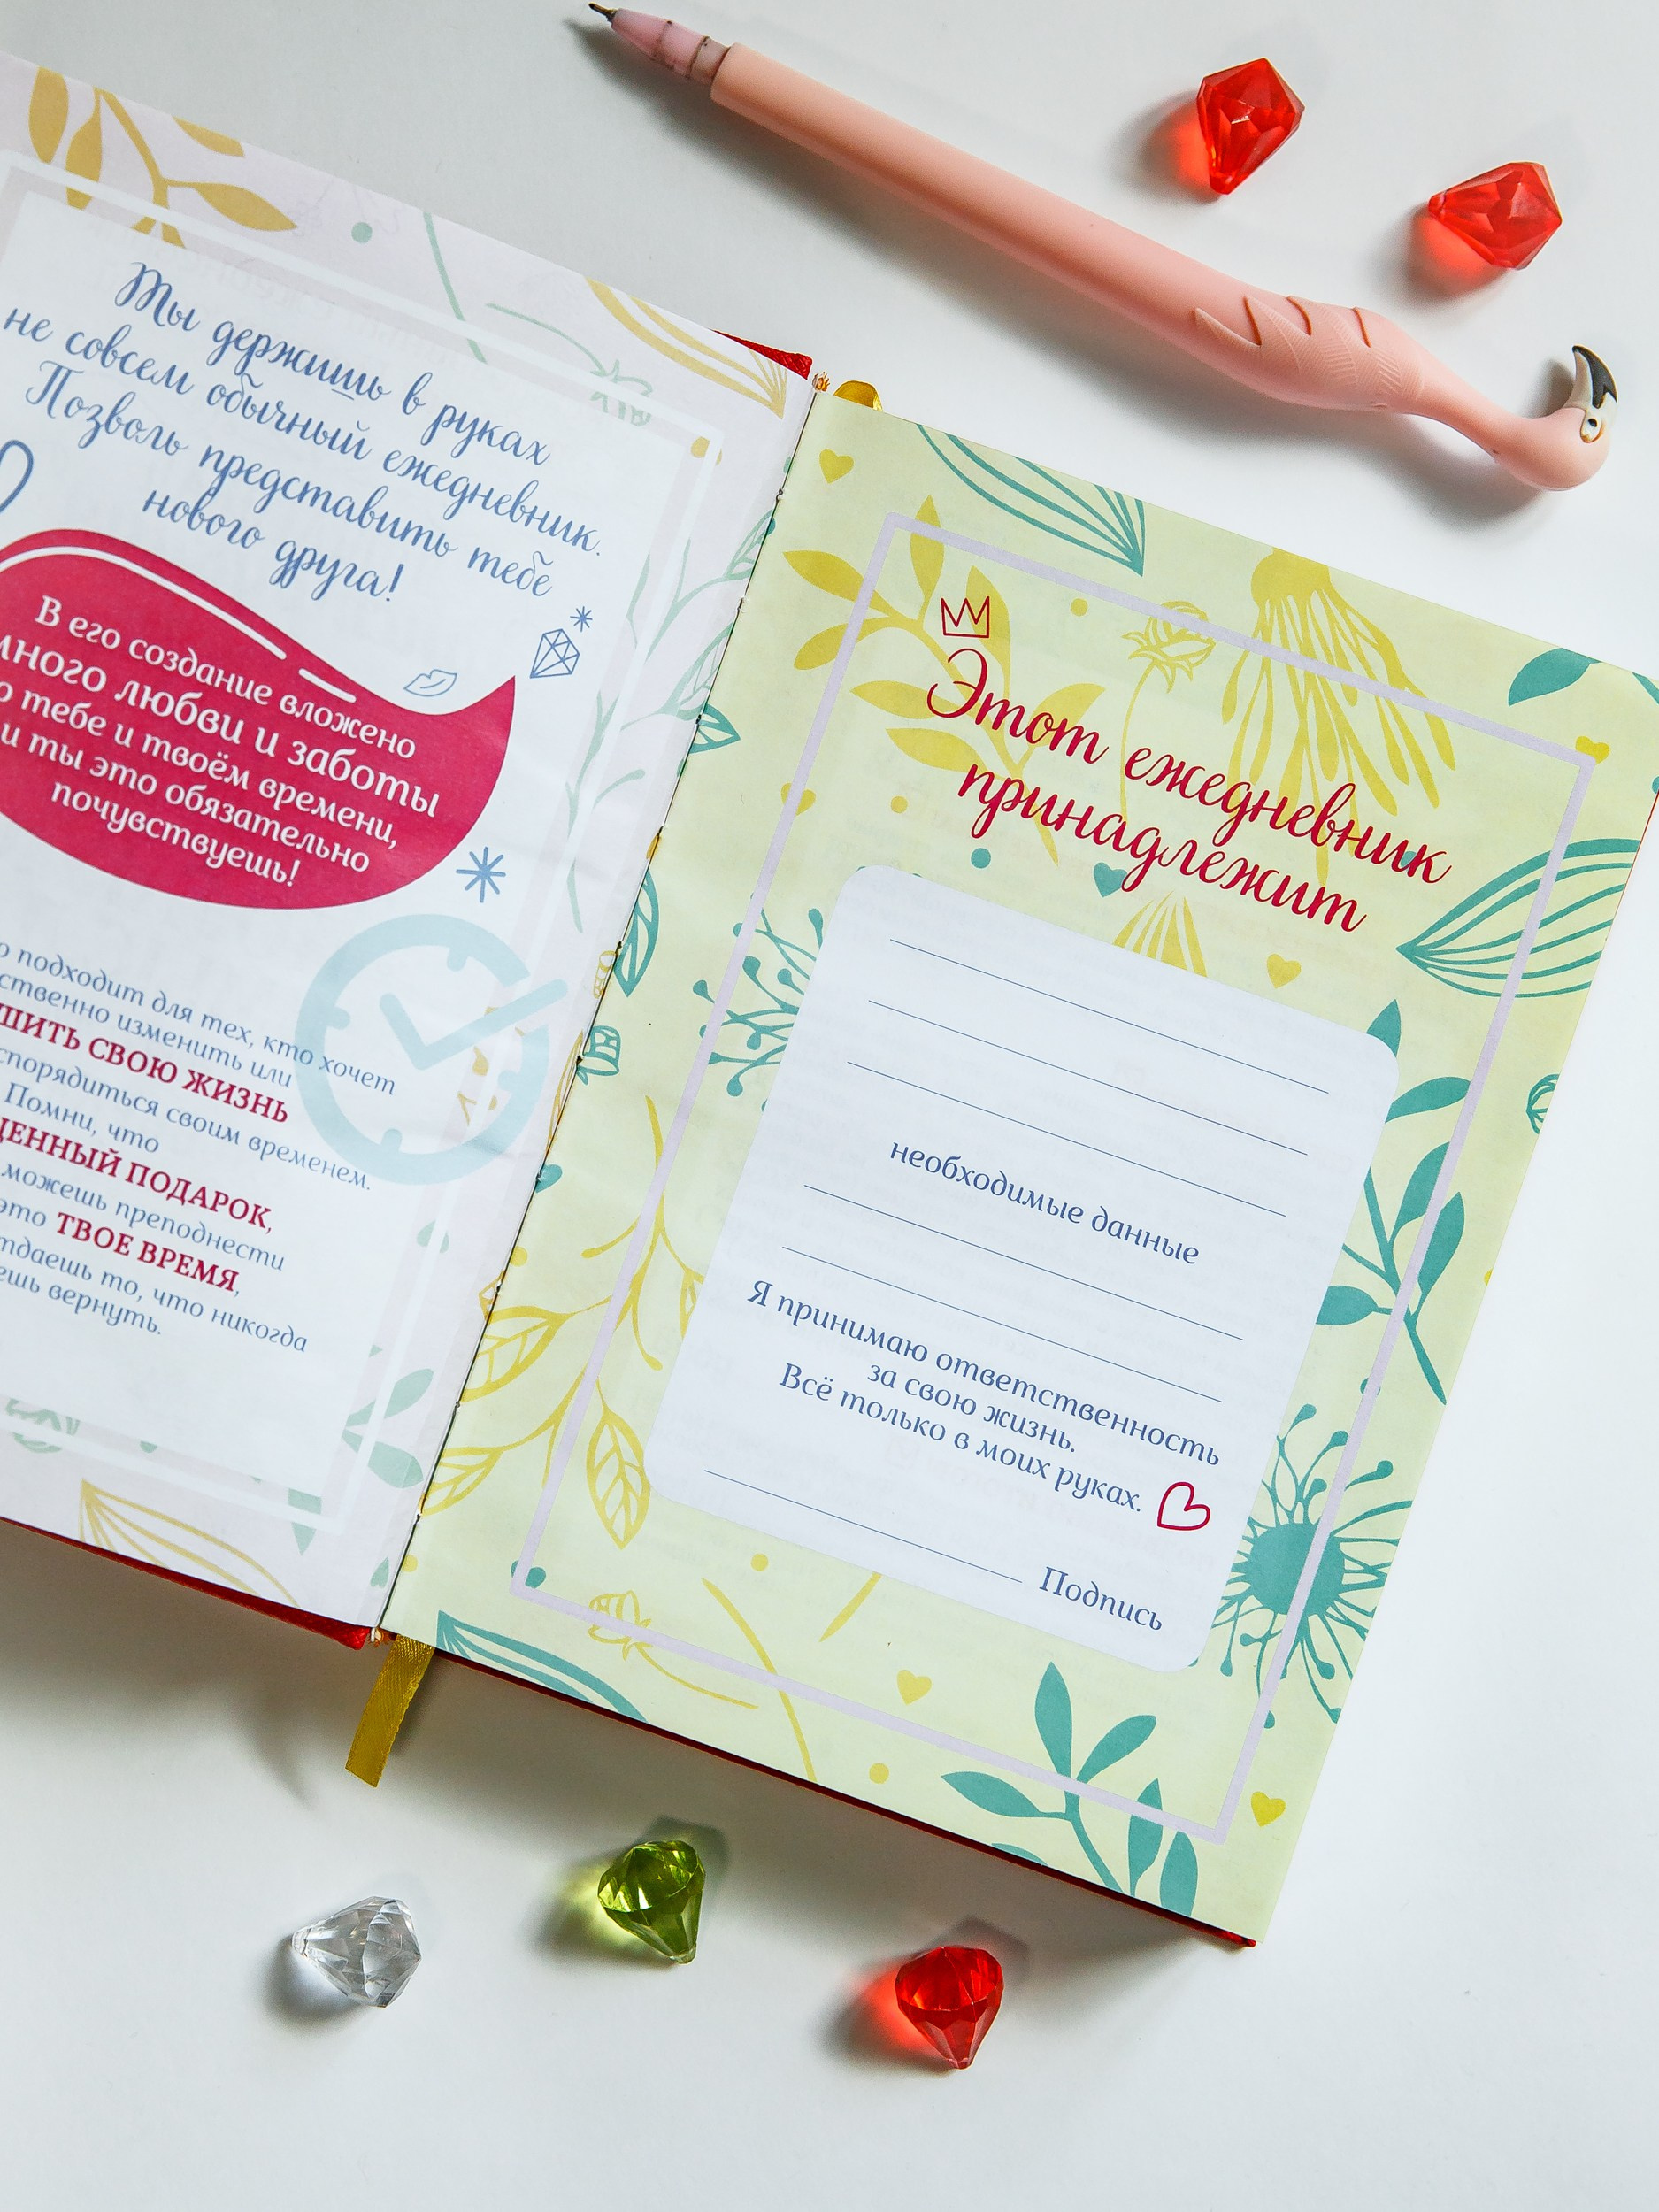 Ты держишь в руках
не совсем обычный ежедневник.
Позволь представить тебе
нового друга!
В его создание вложено
много любви и заботы
тебе и твоём времени,
и ты это обязательно
почувствуешь!
подходит для тех, кто хочет
изменить или
СВОЮ ЖИЗНЬ
своим временем.
Помни, что
ПОДАРОК,
можешь преподнести
это ТВОЕ ВРЕМЯ,
то, что никогда
вернуть.
Этот ежедневник
принадлежит
необходимые данные
Я принимаю ответственность
за свою жизнь.
Всё только в моих руках.
Подпись